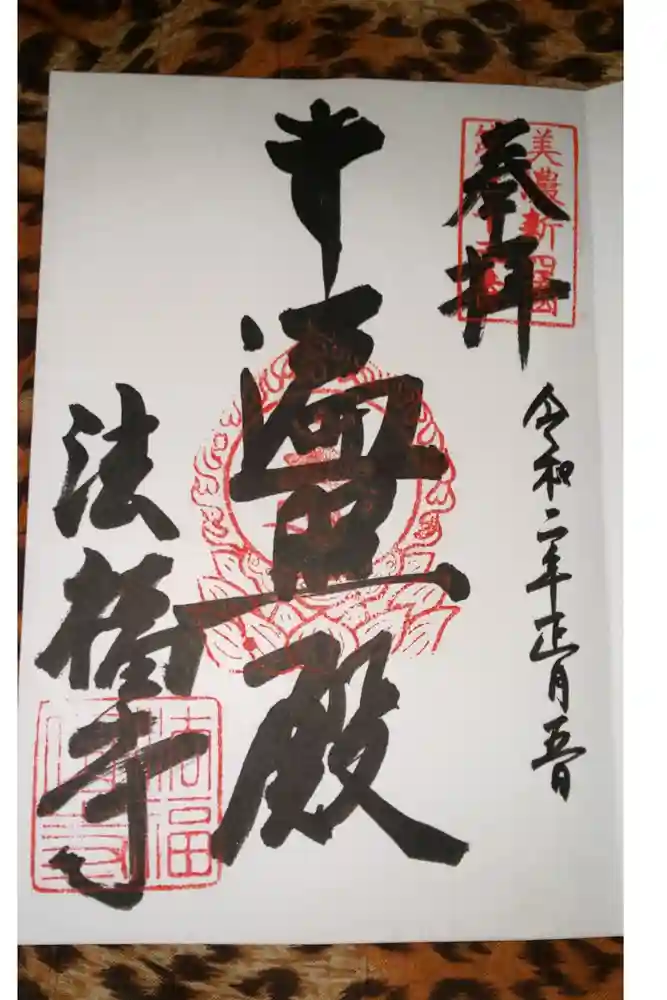 奉拝
美濃新四国
令和二年正月五日
遍照殿
法福寺
法福